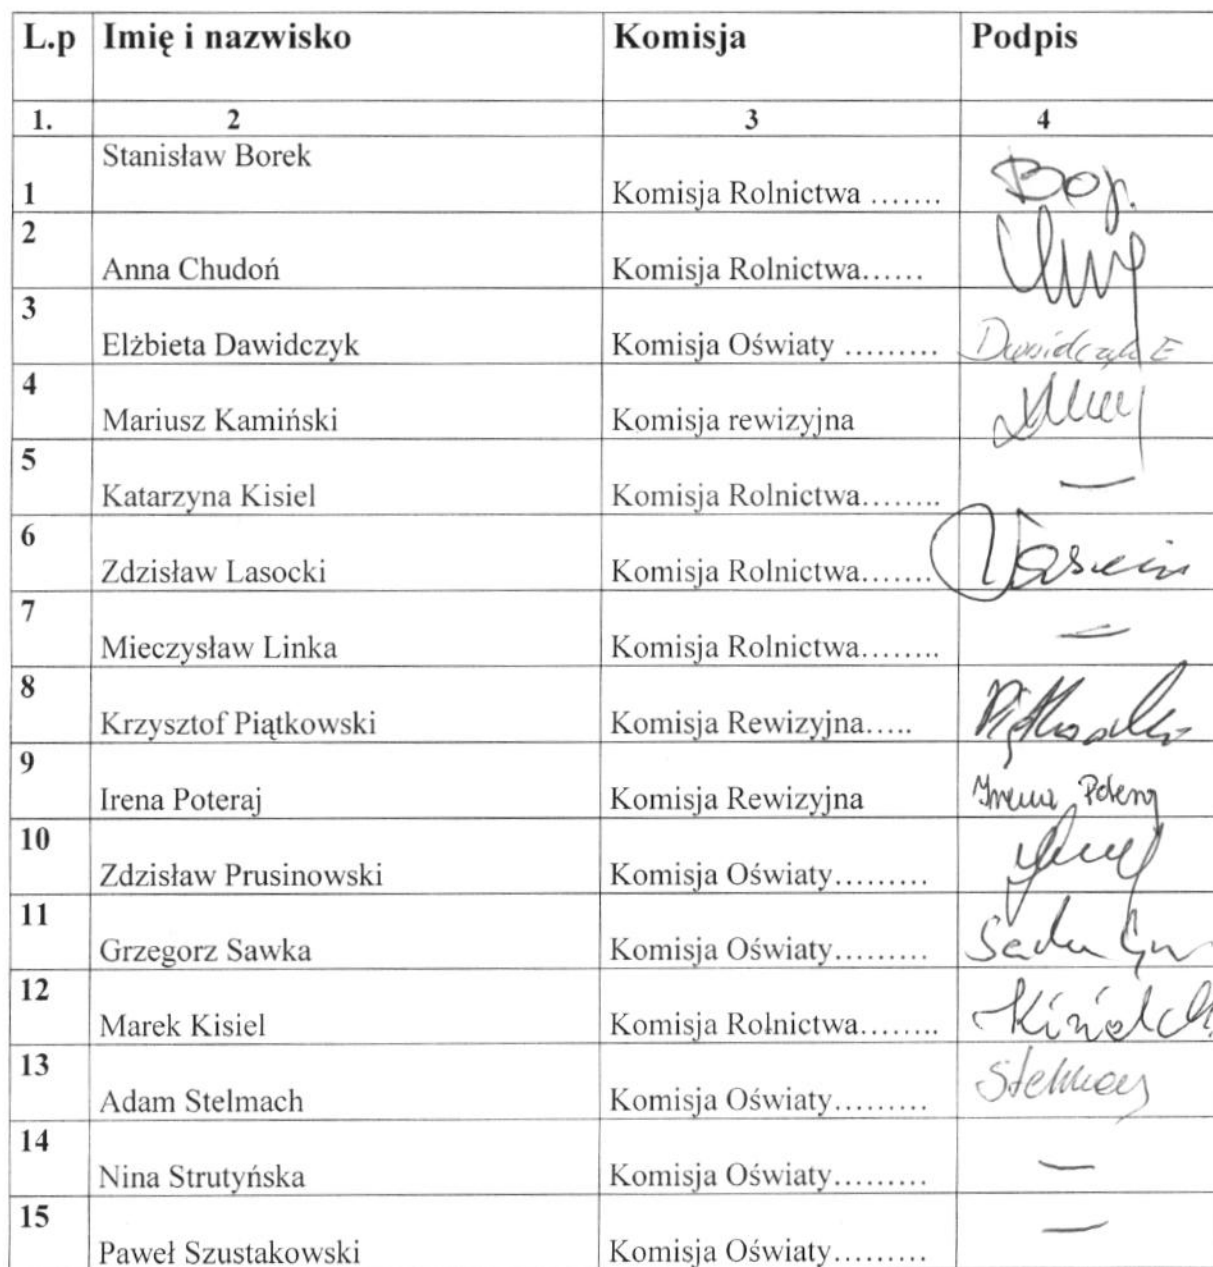 L.p Imię i nazwisko Komisja Podpis
1. 2 3 4
1 Stanisław Borek Komisja Rolnictwa .......
2 Anna Chudoń Komisja Rolnictwa......
3 Elżbieta Dawidczyk Komisja Oświaty ......... Dawidczyk E
4 Mariusz Kamiński Komisja rewizyjna
5 Katarzyna Kisiel Komisja Rolnictwa........ —
6 Zdzisław Lasocki Komisja Rolnictwa.......
7 Mieczysław Linka Komisja Rolnictwa........ —
8 Krzysztof Piątkowski Komisja Rewizyjna.....
9 Irena Poteraj Komisja Rewizyjna Irena Poteraj
10 Zdzisław Prusinowski Komisja Oświaty.........
11 Grzegorz Sawka Komisja Oświaty.........
12 Marek Kisiel Komisja Rolnictwa........
13 Adam Stelmach Komisja Oświaty.........
14 Nina Strutyńska Komisja Oświaty......... —
15 Paweł Szustakowski Komisja Oświaty......... —